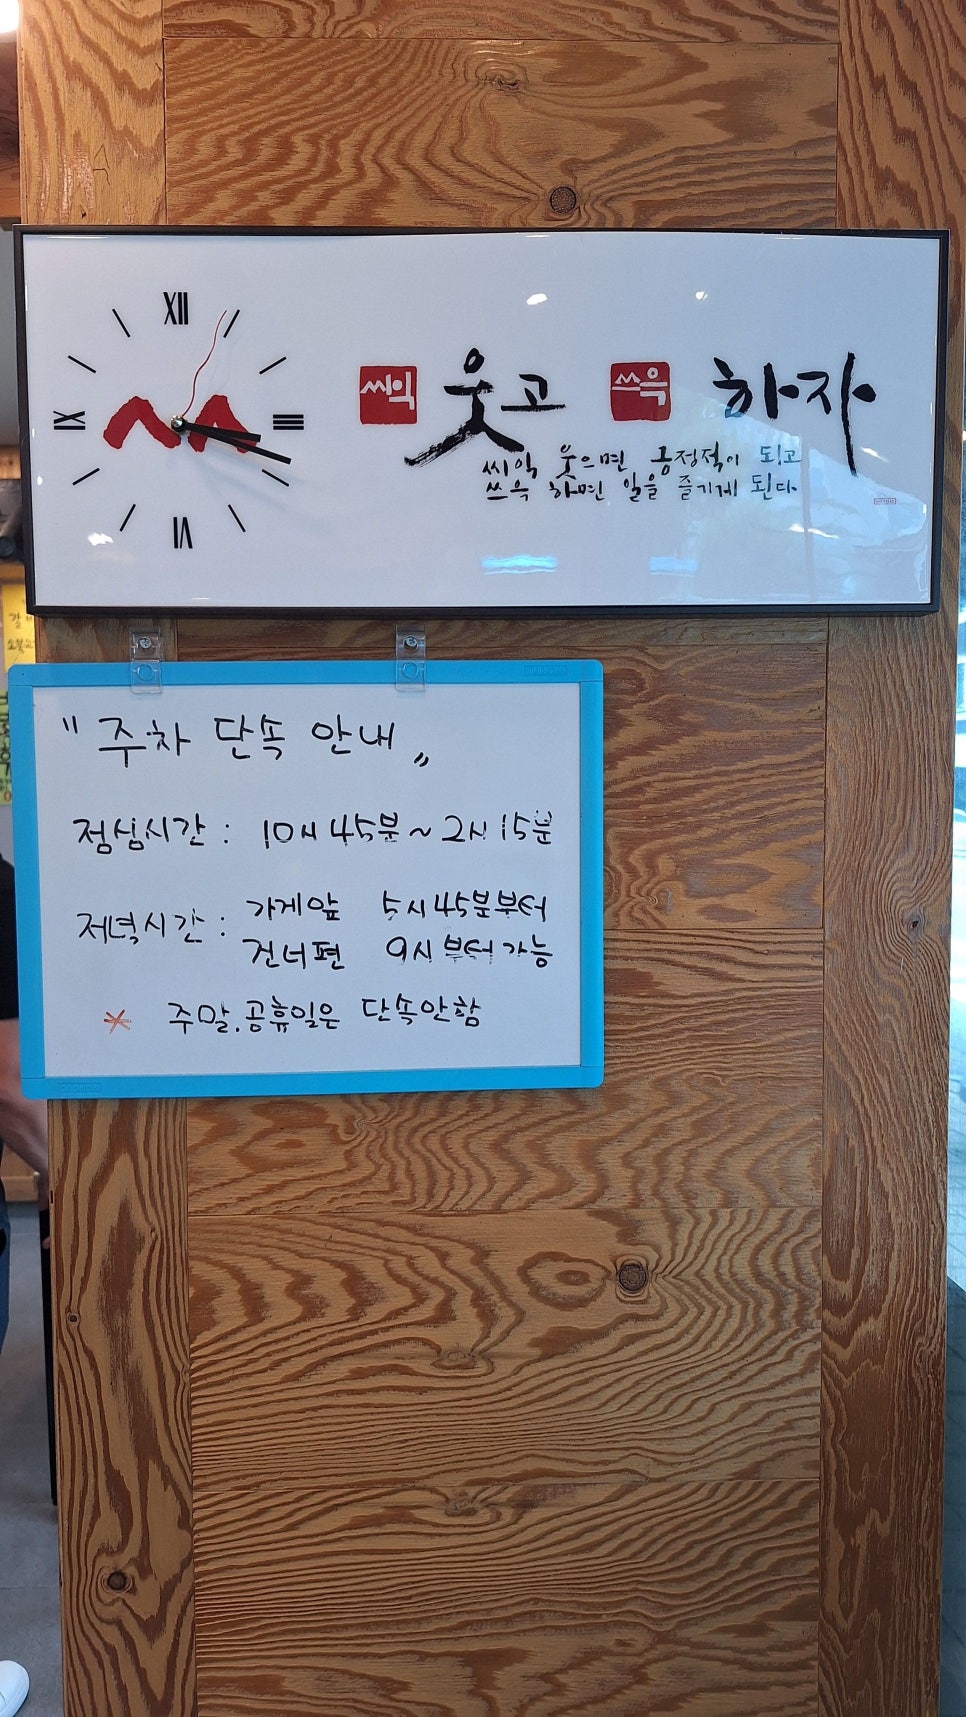 XII
III
VI
IX
씨익 웃고 쓰윽 하자
씨익 웃으면 긍정적이 되고
쓰윽 하면 일을 즐기게 된다
"주차 단속 안내"
점심시간 : 10시 45분 ~ 2시 15분
저녁시간 : 가게앞 5시 45분부터
건너편 9시부터 가능
* 주말.공휴일은 단속안함